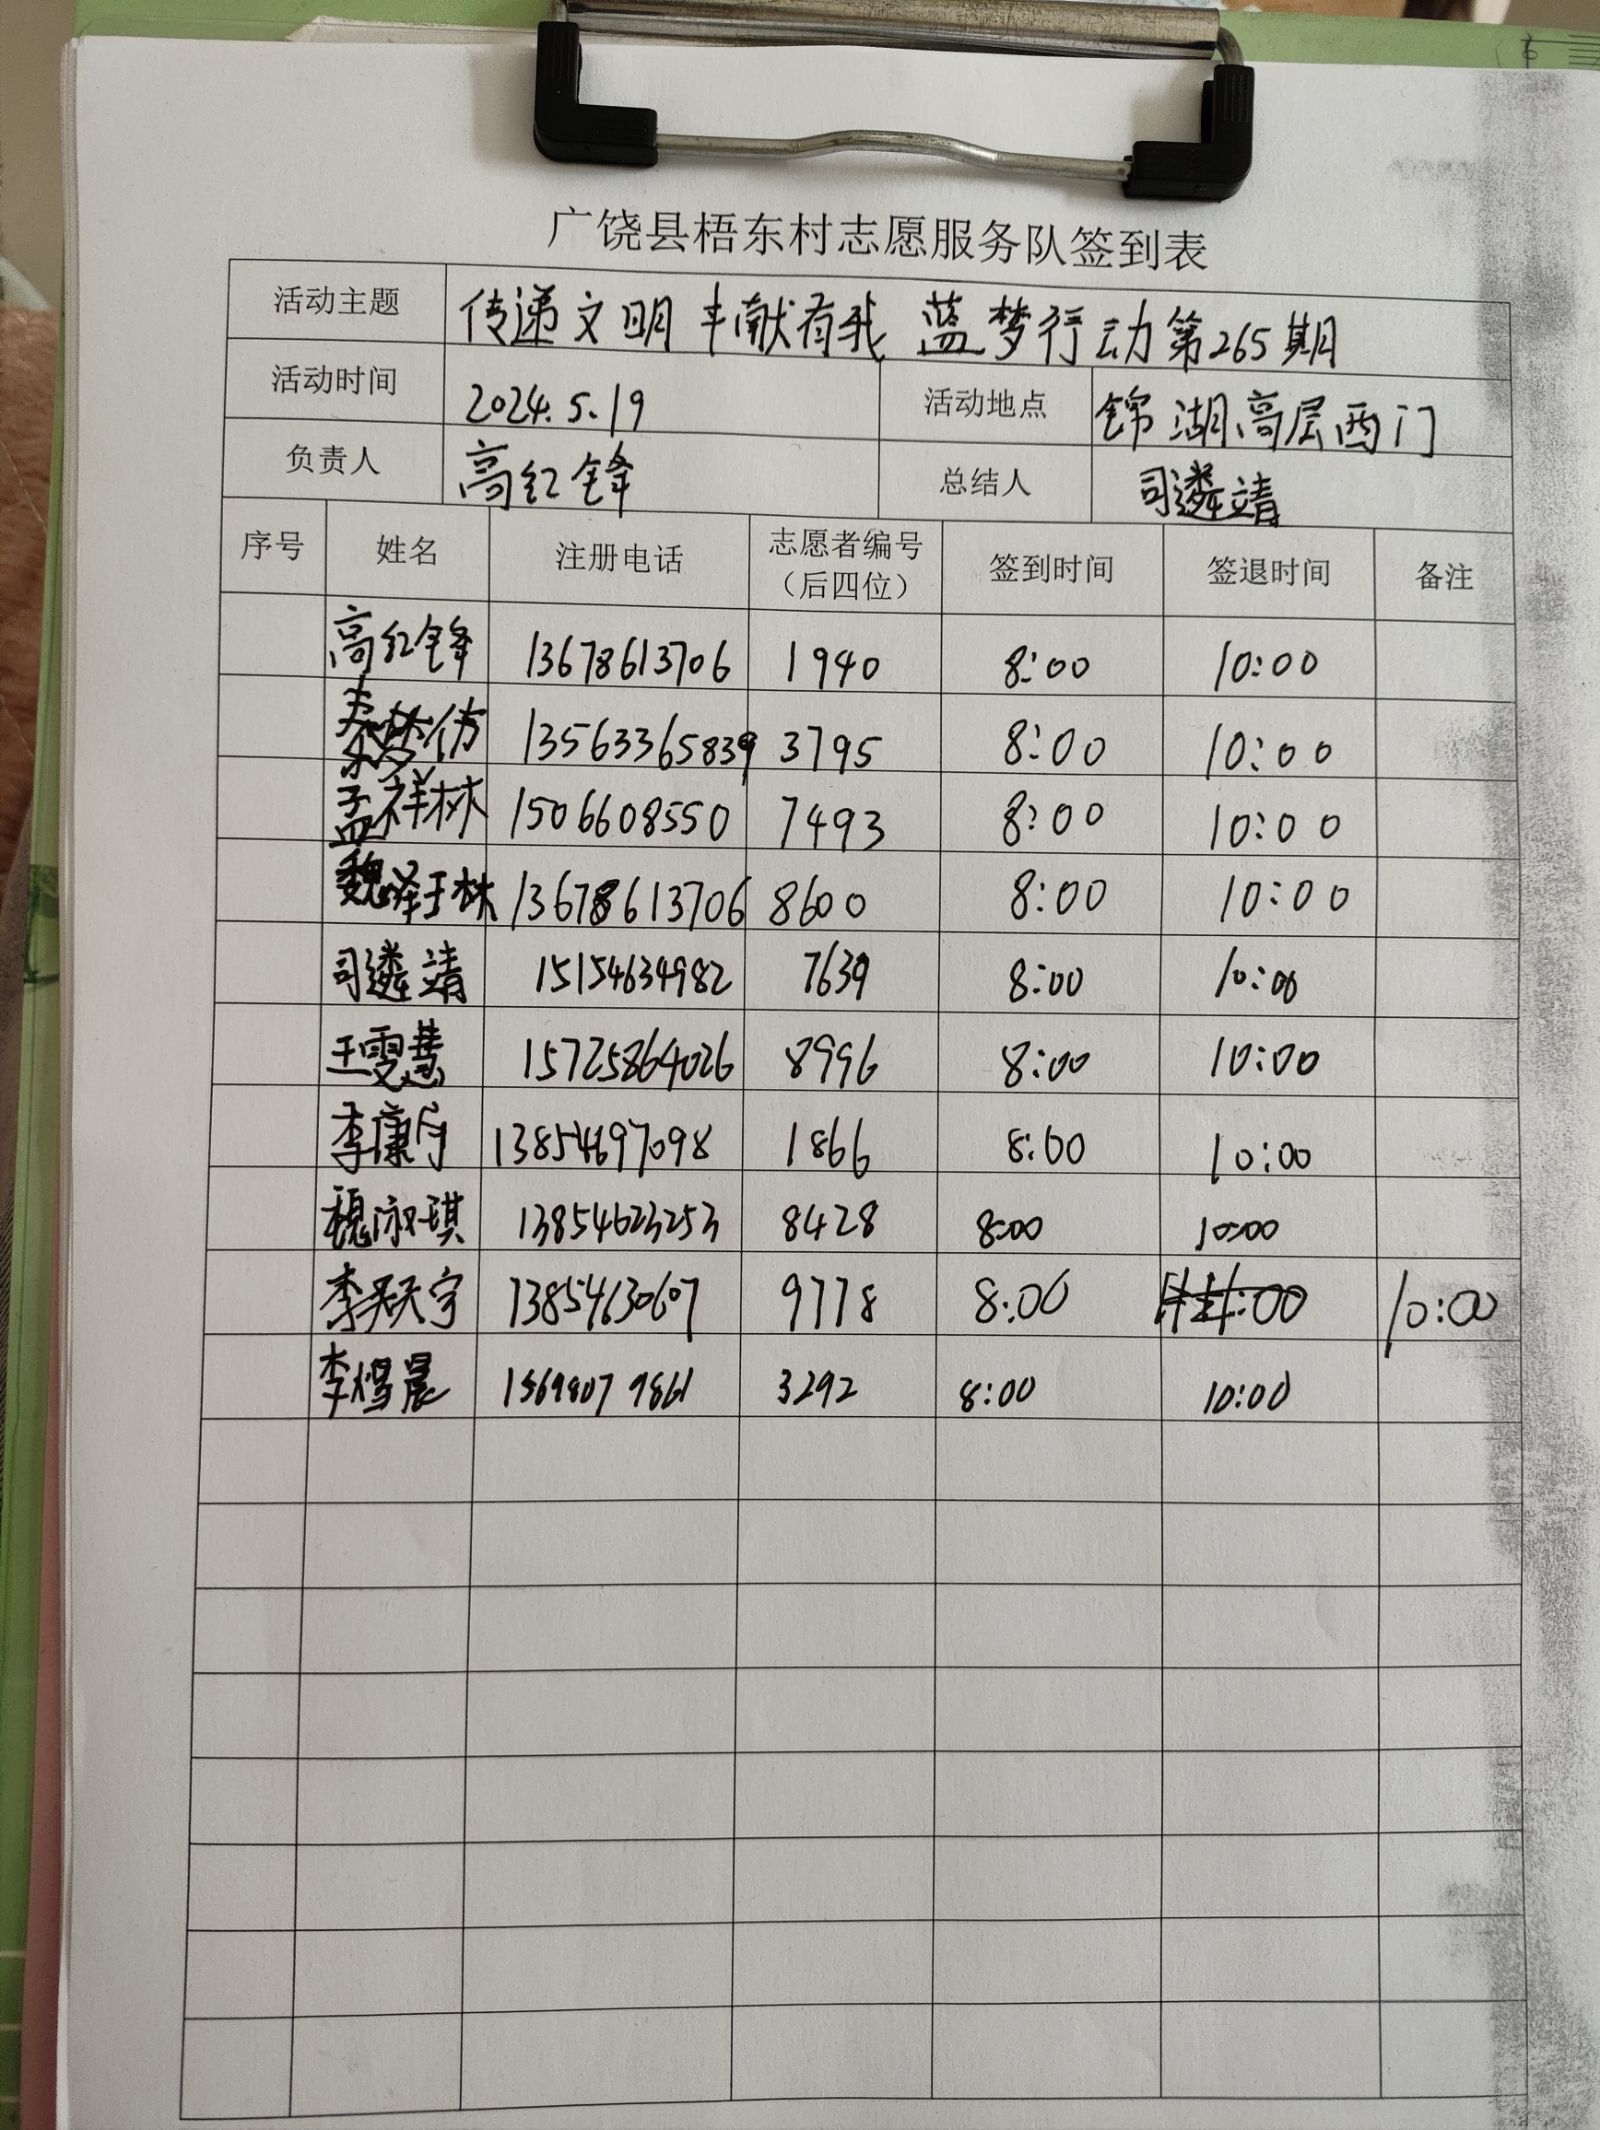 广饶县梧东村志愿服务队签到表
活动主题 传递文明 丰献有我 蓝梦行动第265期
活动时间 2024.5.19 活动地点 锦湖高层西门
负责人 高红锋 总结人 司遴靖
序号 姓名 注册电话 志愿者编号（后四位） 签到时间 签退时间 备注
高红锋 13678613706 1940 8:00 10:00
秦梦仿 13563365839 3795 8:00 10:00
孟祥林 1506608550 7493 8:00 10:00
魏泽林 13678613706 8600 8:00 10:00
司遴靖 15154634982 7639 8:00 10:00
王雯慧 15725864026 8996 8:00 10:00
李康 13854697098 1866 8:00 10:00
魏淑琪 13854623253 8428 8:00 10:00
李昊天宇 13854630607 9778 8:00 :00 10:00
李煜晨 15698079861 3292 8:00 10:00